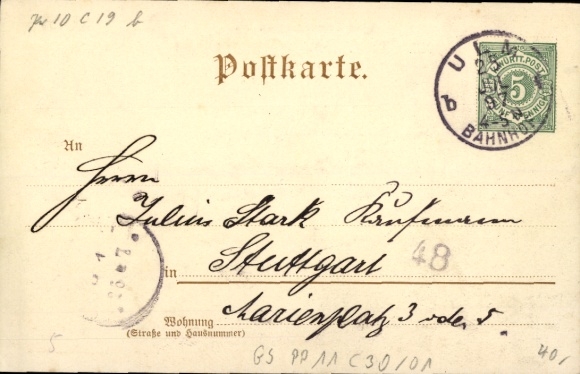 PP 10 C 19 b
Postkarte.
ULM
25
JUL
97
4-5
b
BAHNHOF
WÜRTT. POST
5
An
Herrn
Julius Stark Kaufmann
48
in Stuttgart
Marienplatz 3 oder 5.
Wohnung
(Straße und Hausnummer)
5
GS PP 11 C 30/01
40,